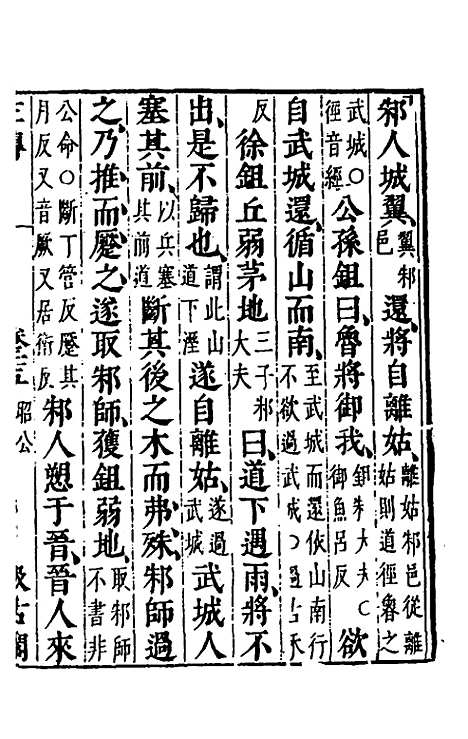 邾人城翼翼邾邑還將自離姑離姑邾邑從離姑則道徑魯之
武城○徑音經公孫鉏曰魯將御我鉏邾大夫○御魚呂反欲
自武城還循山而南至武城而還依山南行不欲過武城○過古禾
反徐鉏丘弱茅地三子邾大夫曰道下遇雨將不
出是不歸也謂此山道下溼遂自離姑遂過武城武城人
塞其前以兵塞其前道斷其後之木而弗殊邾師過
之乃推而蹷之遂取邾師獲鉏弱地取邾師不書非
公命○斷丁管反蹷其月反又音厥又居衛反邾人愬于晉晉人來
昭公